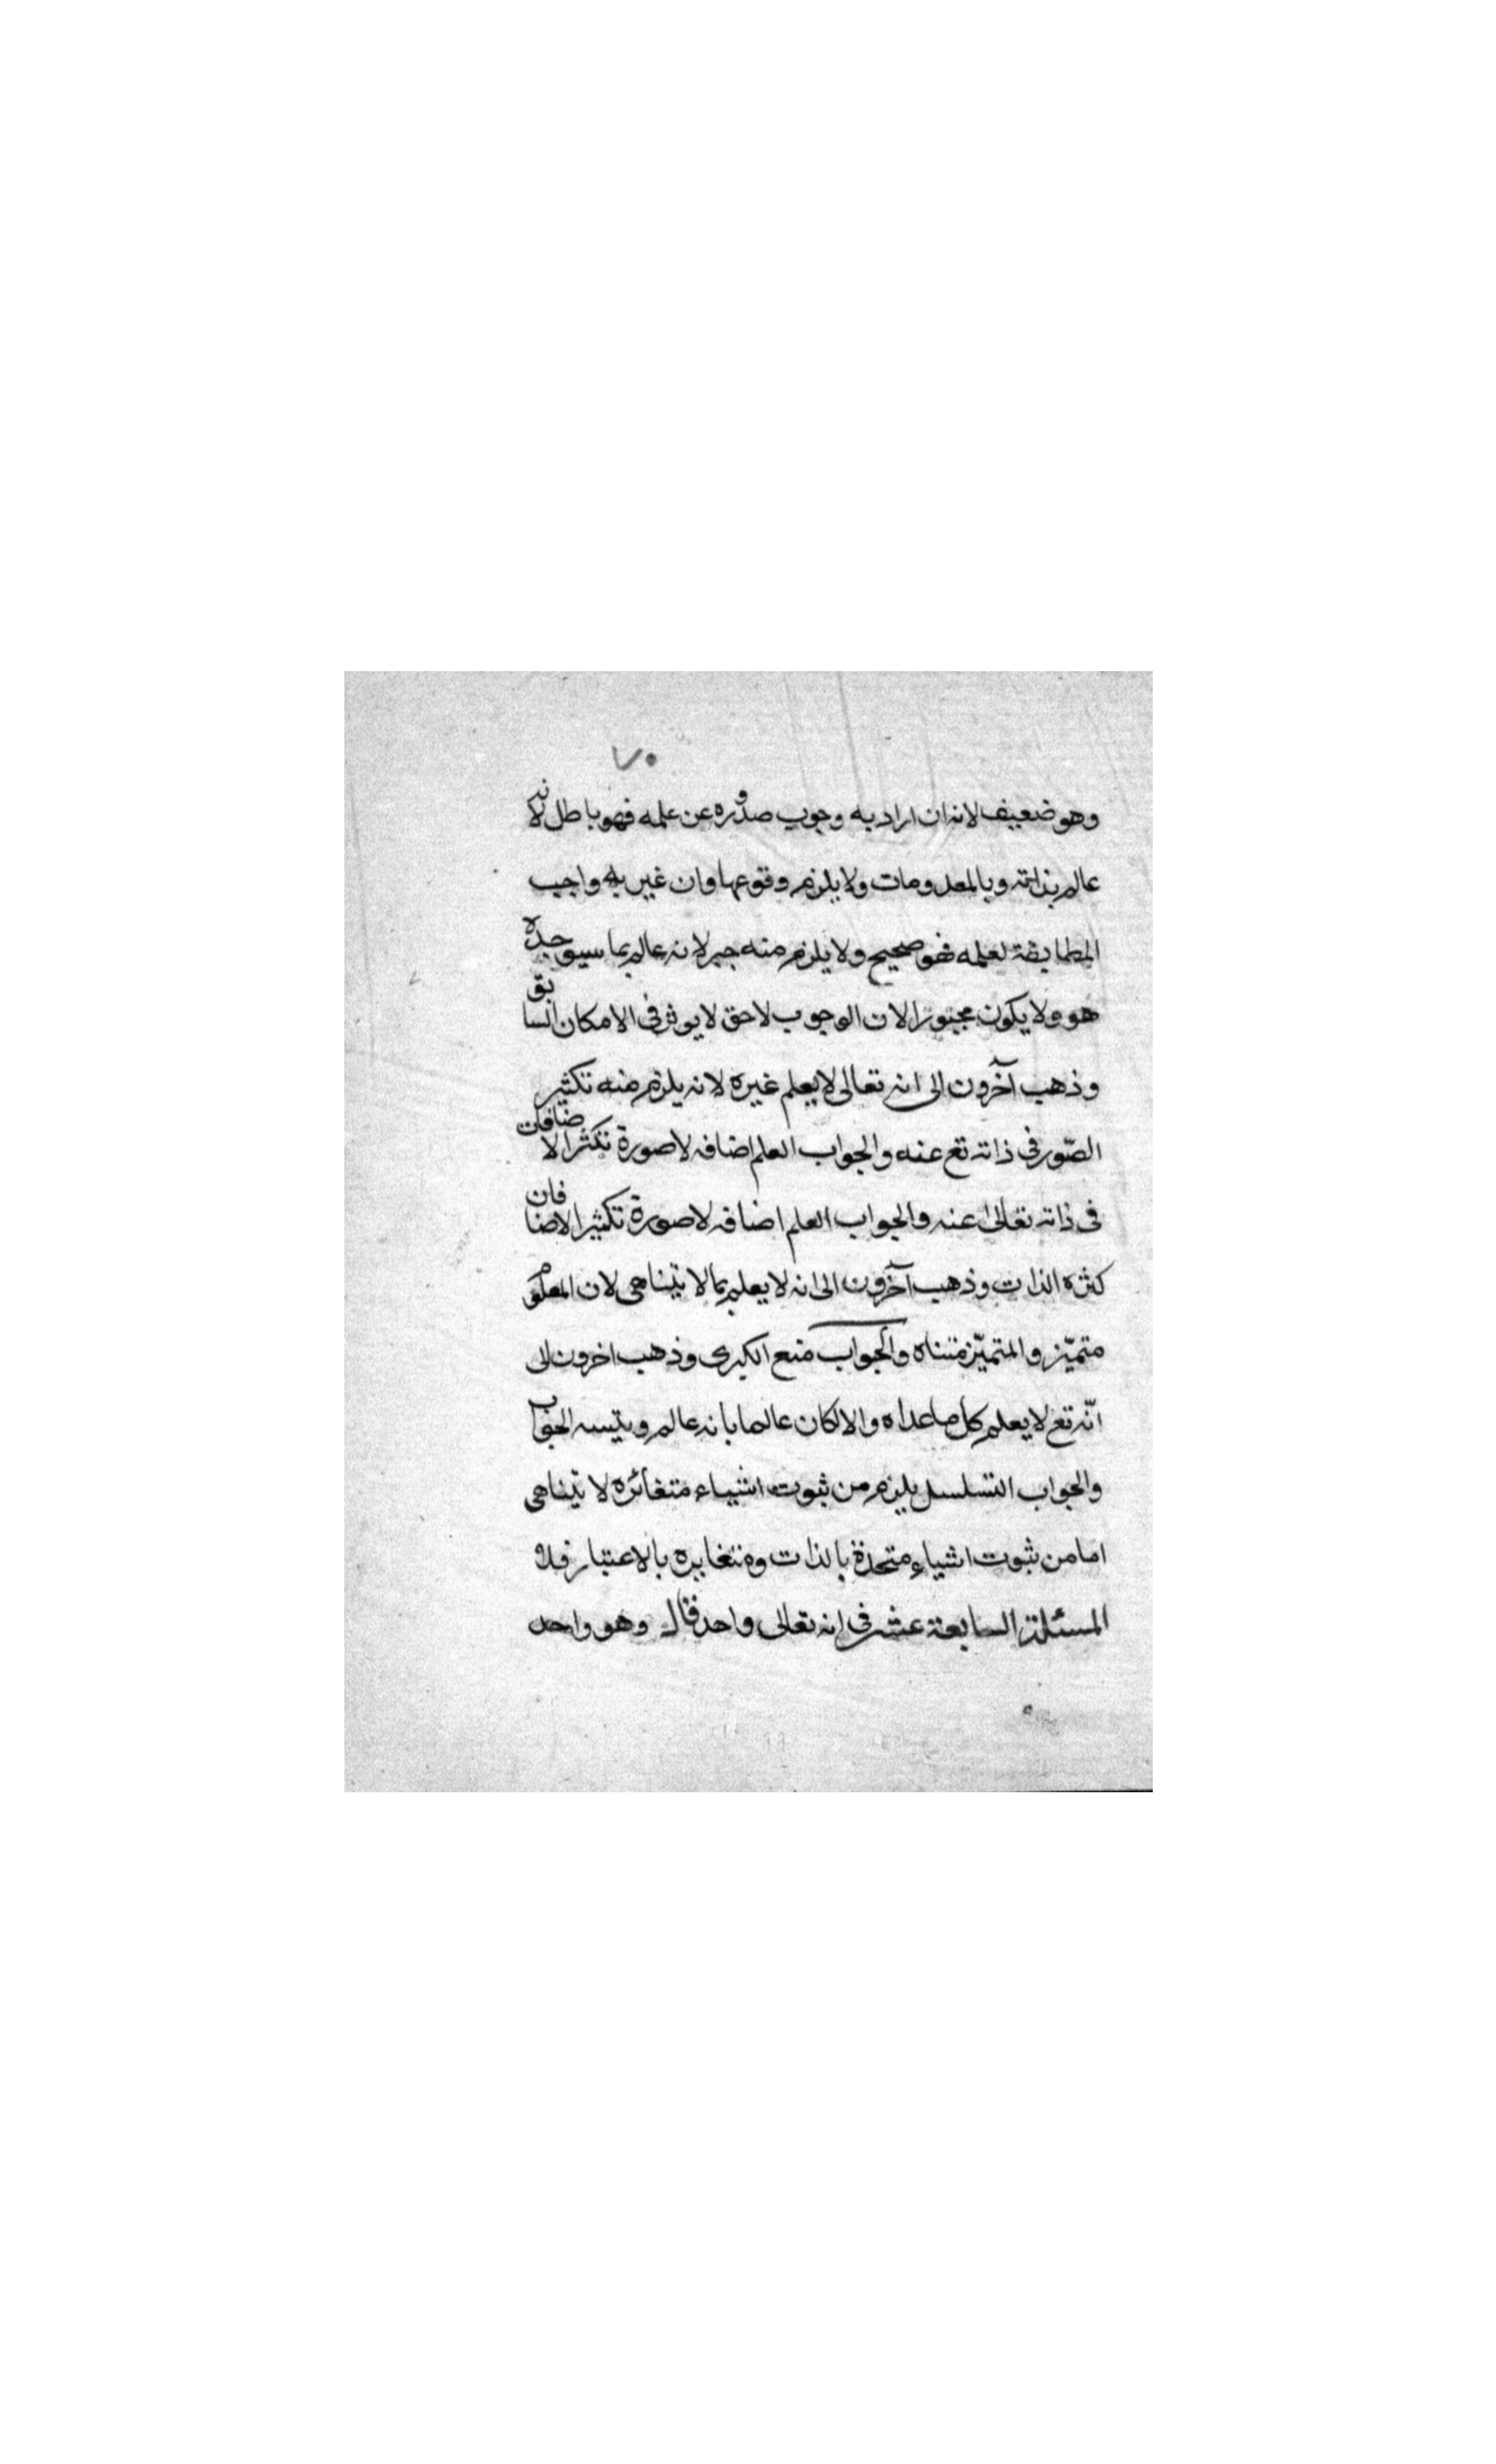 ٧٠
وهو ضعيف لانه ان اراد به وجوب صدوره عن علمه فهو باطل لانه
عالم بذاته وبالمعدومات ولا يلزم وقوعها وان غير به واجب
المطابقة لعلمه فهو صحيح ولا يلزم منه جبر لانه عالم بما سيوجده
هو ولا يكون مجبورا لان الوجوب لاحق لا يوثر فى الامكان السابق
وذهب آخرون الى انه تعالى لا يعلم غيره لانه يلزم منه تكثير
الصّور فى ذاته تع عنه والجواب العلم اضافه لا صورة تكثر الاضافات
فى ذاته تعالى عنه والجواب العلم اضافه لا صورة تكثير الاضافات
كثره الذات وذهب آخرون الى انه لا يعلم بما لا يتناهى لان المعلوم
متميّز والمتميّز متناه والجواب منع الكبرى وذهب اخرون الى
انّه تع لا يعلم كل ما عداه والا لكان عالما بانه عالم ويتسه الجواب
والجواب التسلسل يلزم من ثبوت اشياء متغائره لا يتناهى
اما من ثبوت اشياء متحدة بالذات ومتغايره بالاعتبار فلا
المسئلة السابعة عشر فى انه تعالى واحد قال وهو واحد